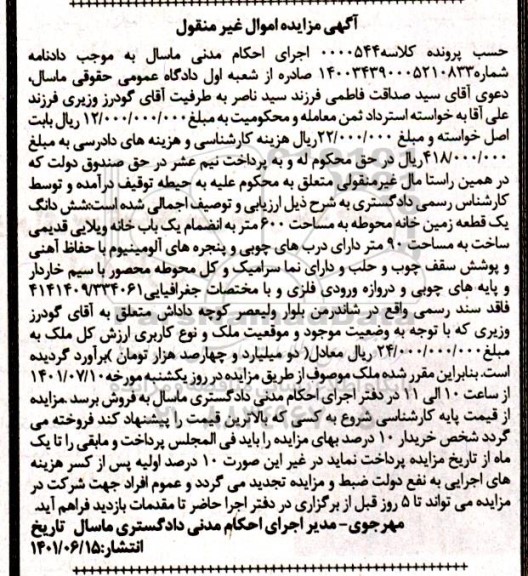 آگهی مزایده اموال غیر منقول
حسب پرونده کلاسه ۰۰۰۰۵۴۴ اجرای احکام مدنی ماسال به موجب دادنامه
شماره ۱۴۰۰۳۴۳۹۰۰۰۵۲۱۰۸۳۳ صادره از شعبه اول دادگاه عمومی حقوقی ماسال،
دعوی آقای سید صداقت فاطمی فرزند سید ناصر به طرفیت آقای گودرز وزیری فرزند
علی آقا به خواسته استرداد ثمن معامله و محکومیت به مبلغ ۱۲/۰۰۰/۰۰۰/۰۰۰ ریال بابت
اصل خواسته و مبلغ ۲۲/۰۰۰/۰۰۰ریال هزینه کارشناسی و هزینه های دادرسی به مبلغ
۴۱۸/۰۰۰/۰۰۰ریال در حق محکوم له و به پرداخت نیم عشر در حق صندوق دولت که
در همین راستا مال غیرمنقولی متعلق به محکوم علیه به حیطه توقیف درآمده و توسط
کارشناس رسمی دادگستری به شرح ذیل ارزیابی و توصیف اجمالی شده است:شش دانگ
یک قطعه زمین خانه محوطه به مساحت ۶۰۰ متر به انضمام یک باب خانه ویلایی قدیمی
ساخت به مساحت ۹۰ متر دارای درب های چوبی و پنجره های آلومینیوم با حفاظ آهنی
و پوشش سقف چوب و حلب و دارای نما سرامیک و کل محوطه محصور با سیم خاردار
و پایه های چوبی و دروازه ورودی فلزی و با مختصات جغرافیایی۴۱۴۱۴۰۹/۳۳۴۰۶۱
فاقد سند رسمی واقع در شاندرمن بلوار ولیعصر کوچه داداش متعلق به آقای گودرز
وزیری که با توجه به وضعیت موجود و موقعیت ملک و نوع کاربری ارزش کل ملک به
مبلغ ۲۴/۰۰۰/۰۰۰/۰۰۰ ریال معادل( دو میلیارد و چهارصد هزار تومان )برآورد گردیده
است. بنابراین مقرر شده ملک موصوف از طریق مزایده در روز یکشنبه مورخه ۱۴۰۱/۰۷/۱۰
از ساعت ۱۰ الی ۱۱ در دفتر اجرای احکام مدنی دادگستری ماسال به فروش برسد .مزایده
از قیمت پایه کارشناسی شروع به کسی که بالاترین قیمت را پیشنهاد کند فروخته می
گردد شخص خریدار ۱۰ درصد بهای مزایده را باید فی المجلس پرداخت و مابقی را تا یک
ماه از تاریخ مزایده پرداخت نماید در غیر این صورت ۱۰ درصد اولیه پس از کسر هزینه
های اجرایی به نفع دولت ضبط و مزایده تجدید می گردد و عموم افراد جهت شرکت در
مزایده می تواند تا ۵ روز قبل از برگزاری در دفتر اجرا حاضر تا مقدمات بازدید فراهم آید.
مهرجوی- مدیر اجرای احکام مدنی دادگستری ماسال تاریخ
انتشار:۱۴۰۱/۰۶/۱۵